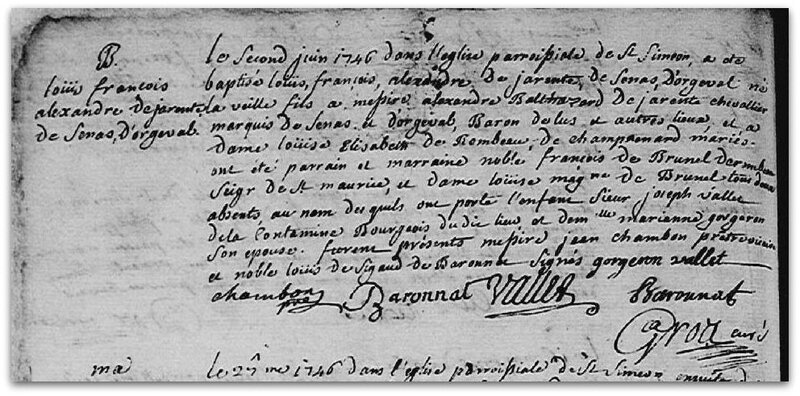 B.
loüis francois
alexandre de jarente
de Senas, D'orgeval.
le Second juin 1746 dans l'eglise parroissiale de St Simeon, a eté
baptisé loüis, françois, alexandre de jarente, de Senas, D'orgeval né
la veille fils a messire alexandre Balthazard de jarente chevallier
marquis de Senas et d'orgeval, Baron de lus et autres lieux et a
Dame loüise Elisabeth de Rombeau, de champrenard mariés.
ont eté parrain et marraine noble françois de Brunel
Seigr de St maurice, et dame loüise de Brunel tous deux
absents, au nom desquels ont porté l'enfant Sieur joseph vallet
de la Contamine Bourgeois dudit lieu et demlle marianne gorgeron
Son epouse. furent présents messire jean chambon prêtre
et noble loüis de Sigaud de Baronnat Signés gorgeron vallet
chambon ptre Baronnat Vallet Baronnat
curé
ma
le 1746 dans l'eglise parroissiale de St Simeon